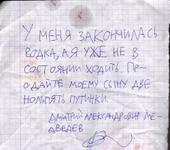 У МЕНЯ ЗАКОНЧИЛАСЬ
ВОДКА, А Я УЖЕ НЕ В
СОСТОЯНИИ ХОДИТЬ ПРО-
ДАЙТЕ МОЕМУ СЫНУ ДВЕ
НОЛЬПЯТЬ ПУТИНКИ.
ДМИТРИЙ АЛЕКСАНДРОВИЧ МЕ-
ДВЕДЕВ